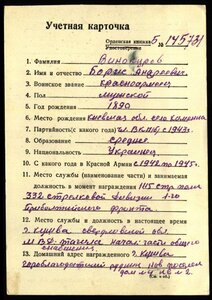 Учетная карточка
Орденская книжка
Удостоверение
Б № 145731
1. Фамилия Винокуров
2. Имя и отчество Борис Андреевич
3. Воинское звание Красноармеец
4. Пол мужской
5. Год рождения 1890
6. Место рождения Киевская обл. село
7. Партийность (с какого года) чл. ВКП(б) с 1943 г.
8. Образование среднее
9. Национальность Украинец
10. С какого года в Красной Армии с 1942 по 1945 г.
11. Место службы (наименование части) и занимаемая
должность в момент награждения 1115 стр. полк
332 стрелковой дивизии 1-го
Прибалтийского фронта
12. Место службы и должность в настоящее время
г. Кушва свердловской обл.
МВД начал. части общего
снабжения
13. Домашний адрес награжденного г. Кушва
дом № 4 кв № 2